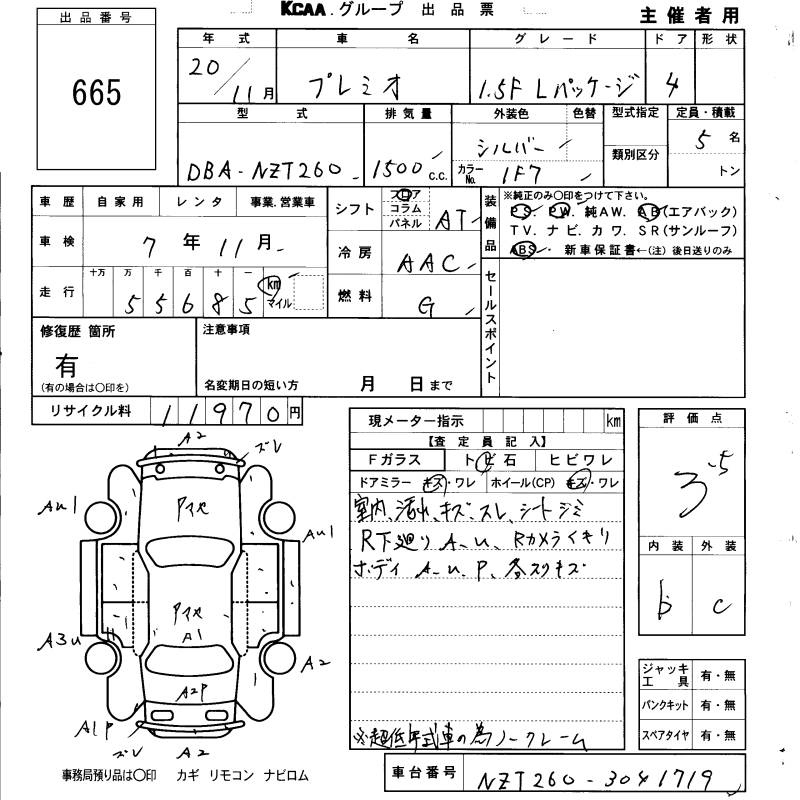 KCAA.グループ 出品票
主催者用
出品番号
665
年式 車名 グレード ドア 形状
20/11月 プレミオ 1.5F Lパッケージ 4
型式 排気量 外装色 色替 型式指定 定員・積載
DBA-NZT260 1500c.c. シルバー 5名
カラーNo. 1F7 類別区分 トン
車歴 自家用 レンタ 事業.営業車
車検 7年11月
走行 十万 万 千 百 十 一
55685 km マイル
シフト フロア コラム パネル AT
冷房 AAC
燃料 G
装備品
※純正のみ○印をつけて下さい。
PS. PW. 純AW. AB(エアバック)
TV. ナビ. カワ. SR(サンルーフ)
ABS. 新車保証書←(注) 後日送りのみ
セールスポイント
修復歴 箇所
有
(有の場合は○印を)
注意事項
名変期日の短い方 月 日まで
リサイクル料 11970円
現メーター指示 km
【査定員記入】
Fガラス トビ石 ヒビワレ
ドアミラー キズ・ワレ ホイール(CP) キズ・ワレ
室内、汚れ、キズ、スレ、シートシミ
R下廻り A-u、Rカメライキリ
ボディ A-u、P、各スリキズ
※超低年式車の為ノークレーム
評価点
3.5
内装 外装
b c
ジャッキ工具 有・無
パンクキット 有・無
スペアタイヤ 有・無
A2
ズレ
Au1
Au1
A1
A3u
A2
A2P
A1P
ズレ
A2
事務局預り品は○印 カギ リモコン ナビロム
車台番号 NZT260-3041719